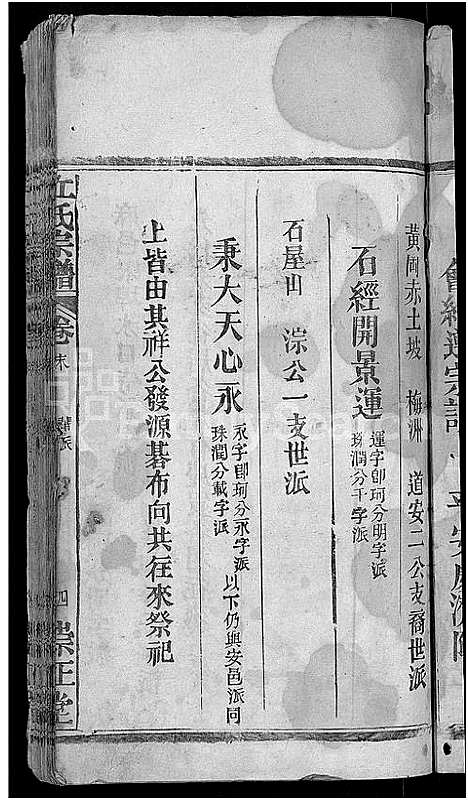 黃岡赤土坡 梅洲 道安二公支裔世派
石經開景運 運字卽珂分明字派
珠潤分干字派
石屋田 淙公一支世派
秉大天心永 永字卽珂分永字派
珠潤分載字派 以下仍與安邑派同
上皆由其祥公發源碁布向共往來祭祀
氏宗譜 卷末 派 四 崇正堂